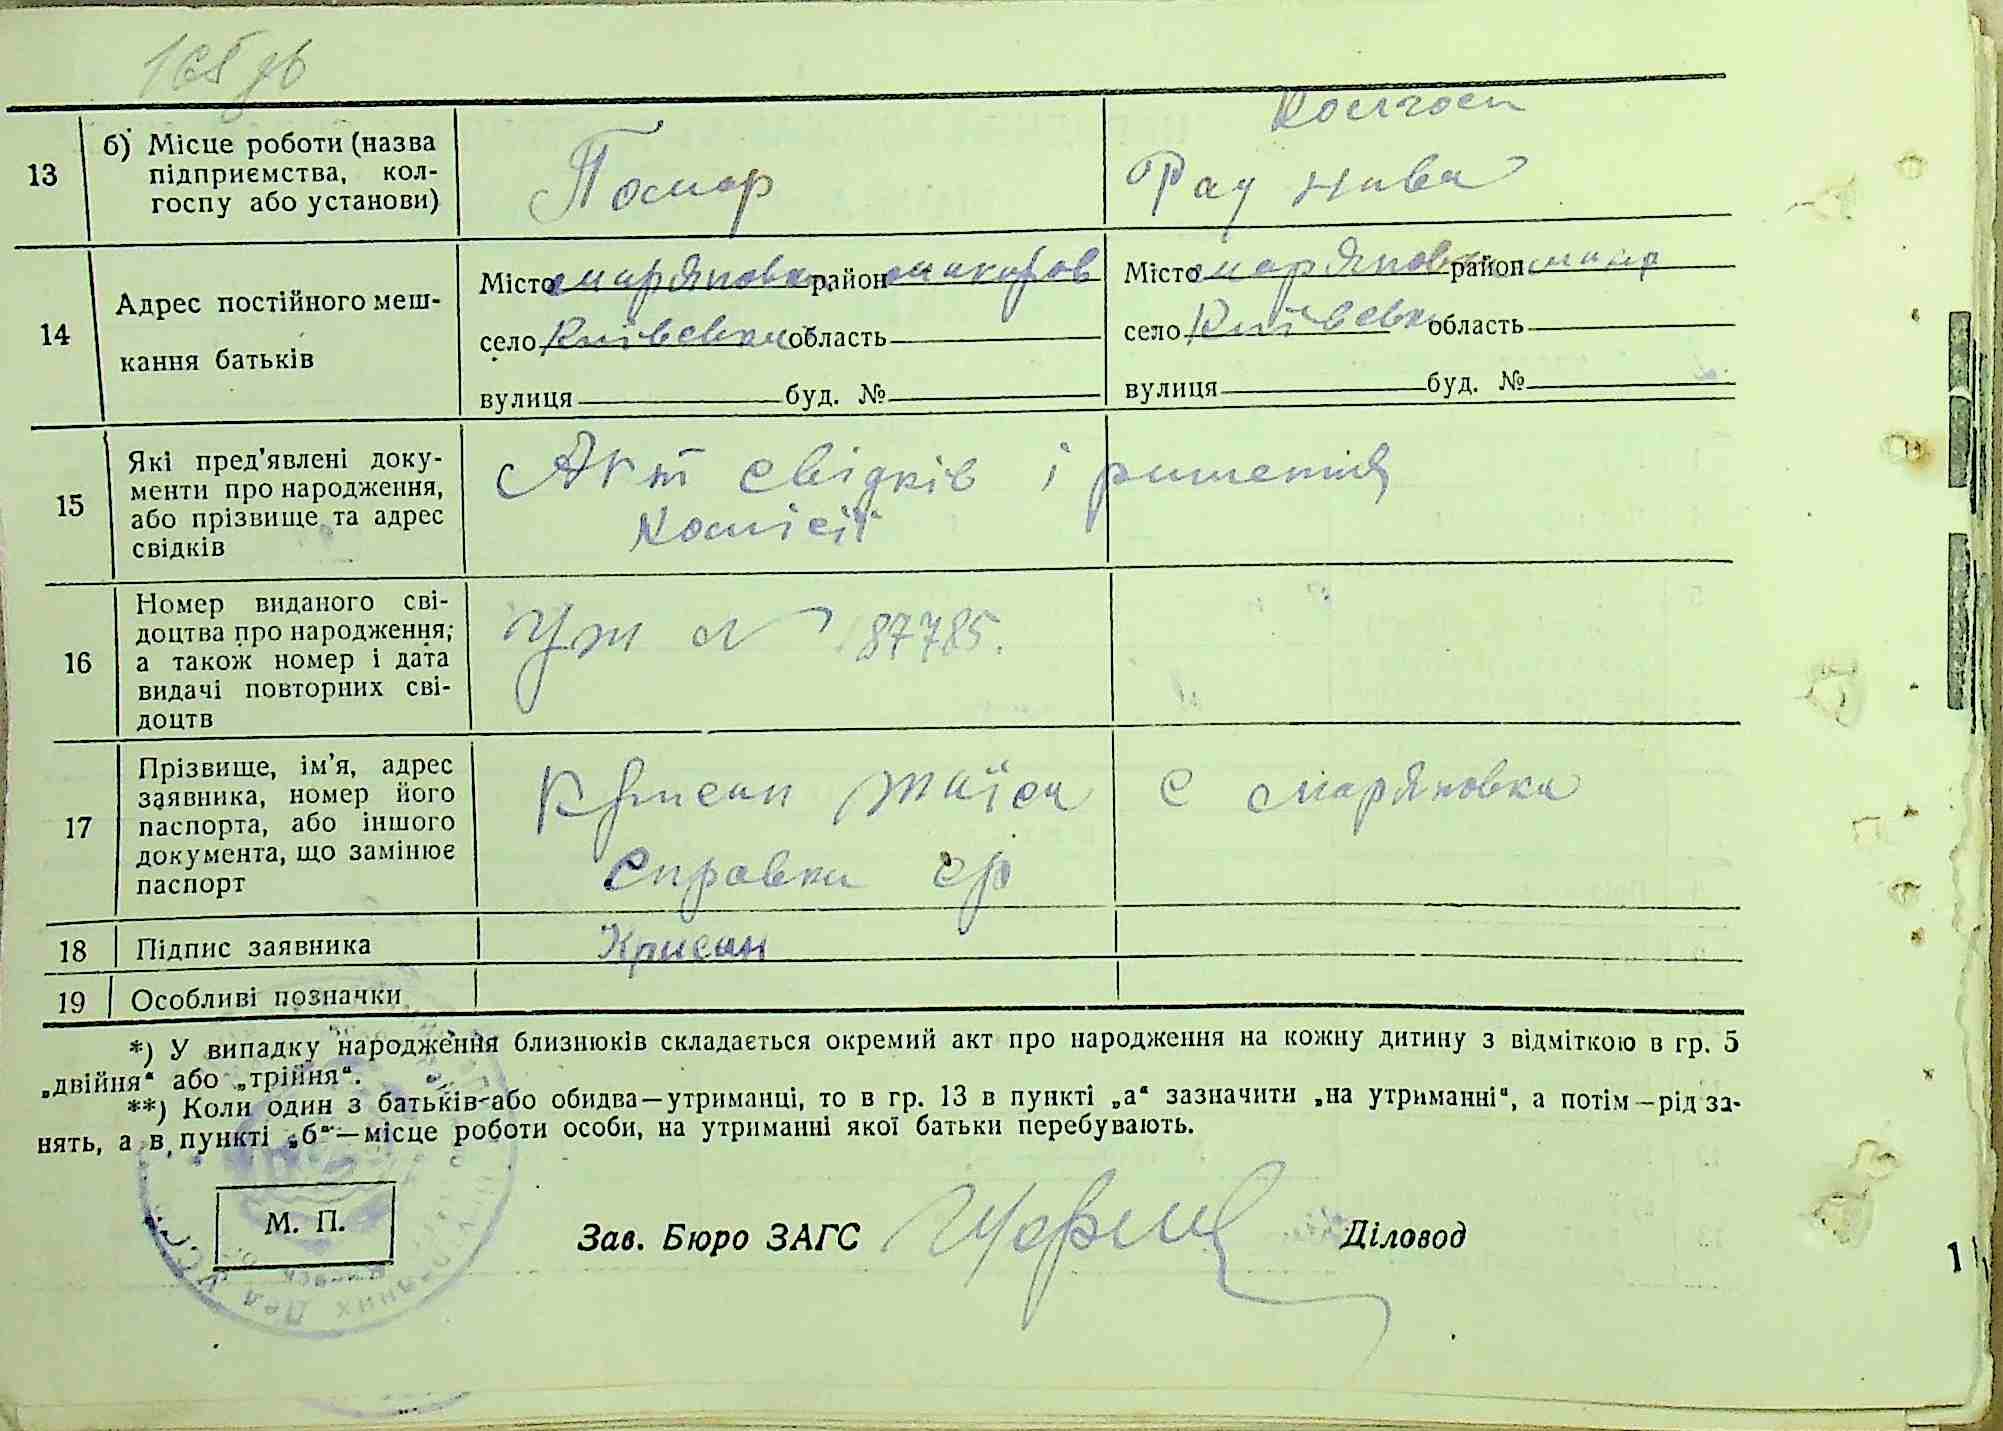 13 б) Місце роботи (назва
підприємства, кол-
госпу або установи)
Помер
Колгосп
Рад нива
14 Адрес постійного меш-
кання батьків
Місто Мар'яновка район Макаров
село Київська область
вулиця буд. №
Місто Мар'яновка район Макар
село Київська область
вулиця буд. №
15 Які пред'явлені доку-
менти про народження,
або прізвище та адрес
свідків
Акт свідків і ришення
комісії
16 Номер виданого сві-
доцтва про народження;
а також номер і дата
видачі повторних сві-
доцтв
№ 87785.
17 Прізвище, ім'я, адрес
заявника, номер його
паспорта, або іншого
документа, що замінює
паспорт
Крисан с Мар'яновка
Справка ср
18 Підпис заявника Крисан
19 Особливі позначки
*) У випадку народження близнюків складається окремий акт про народження на кожну дитину з відміткою в гр. 5
„двійня“ або „трійня“.
**) Коли один з батьків або обидва—утриманці, то в гр. 13 в пункті „а“ зазначити „на утриманні“, а потім—рід за-
нять, а в пункті „б“—місце роботи особи, на утриманні якої батьки перебувають.
М. П.
Зав. Бюро ЗАГС Діловод